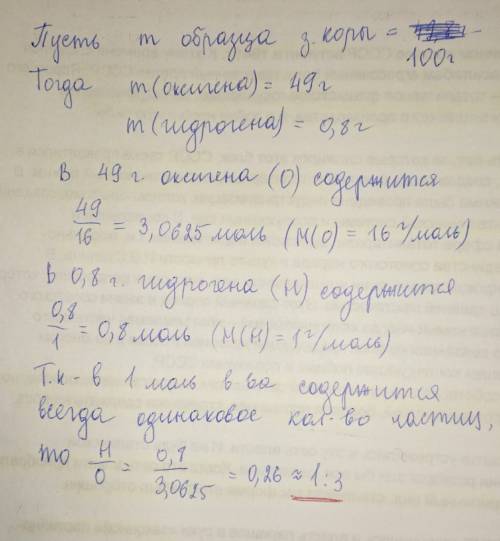 Пусть m образца з. коры =
100г
Тогда m(оксигена) = 49 г
m(гидрогена) = 0,8 г
В 49 г. оксигена (O) содержится
49/16 = 3,0625 моль (M(O) = 16 г/моль)
В 0,8 г. гидрогена (H) содержится
0,8/1 = 0,8 моль (M(H) = 1 г/моль)
Т.к. в 1 моль в-ва содержится
всегда одинаковое кол-во частиц,
то H/O = 0,8/3,0625 = 0,26 ≈ 1:3